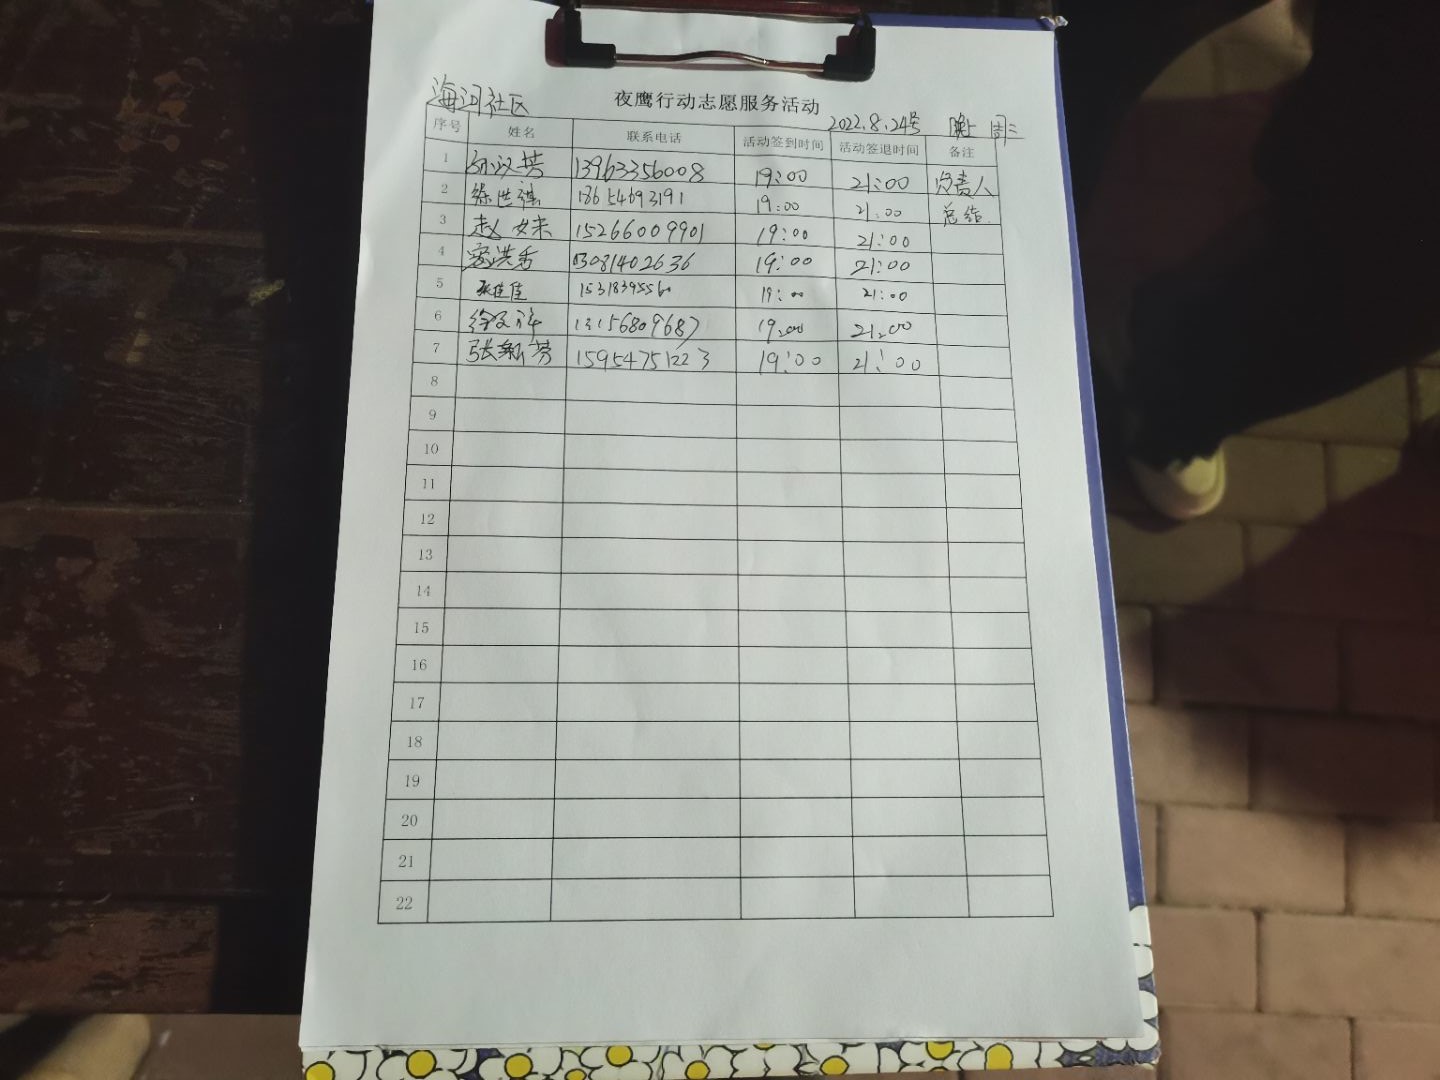 海河社区
夜鹰行动志愿服务活动
2022.8.24号 晚上 周三
序号 姓名 联系电话 活动签到时间 活动签退时间 备注
1 孙汉芳 13963356008 19:00 21:00 负责人
2 徐世祺 18654693191 19:00 21:00 总结
3 赵 15266009901 19:00 21:00
4 洪香 13081402636 19:00 21:00
5 张佳佳 15318395560 19:00 21:00
6 13156809687 19:00 21:00
7 张新芳 15954751223 19:00 21:00
8
9
10
11
12
13
14
15
16
17
18
19
20
21
22